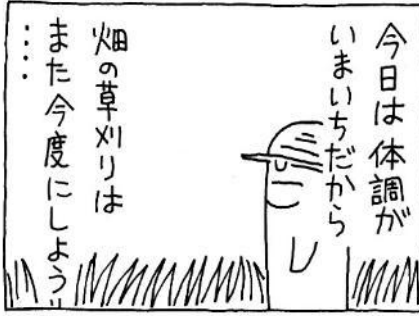 今日は体調が
いまいちだから
畑の草刈りは
また今度にしよう
‥‥